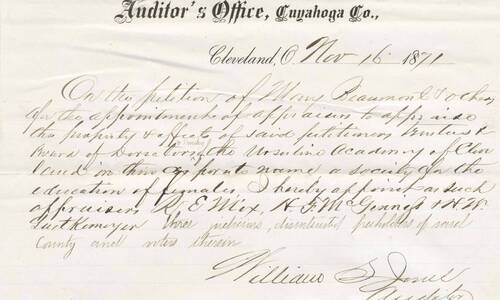 Auditor's Office, Cuyahoga Co.,
Cleveland, O. Nov 16 1871
On the petition of Mary Beaumont & others
for the appointment of appraisers to appraise
the property & effects of said petitioners
Board of Directors, the Ursuline Academy of Cleve
land in the corporate name a society for the
education of females, I hereby appoint as such
appraisers R. E. Mix, H. F. & H. W.
Luetkemeyer three judicious, disinterested freeholders of said
County and voters therein
William S. Jones
Auditor